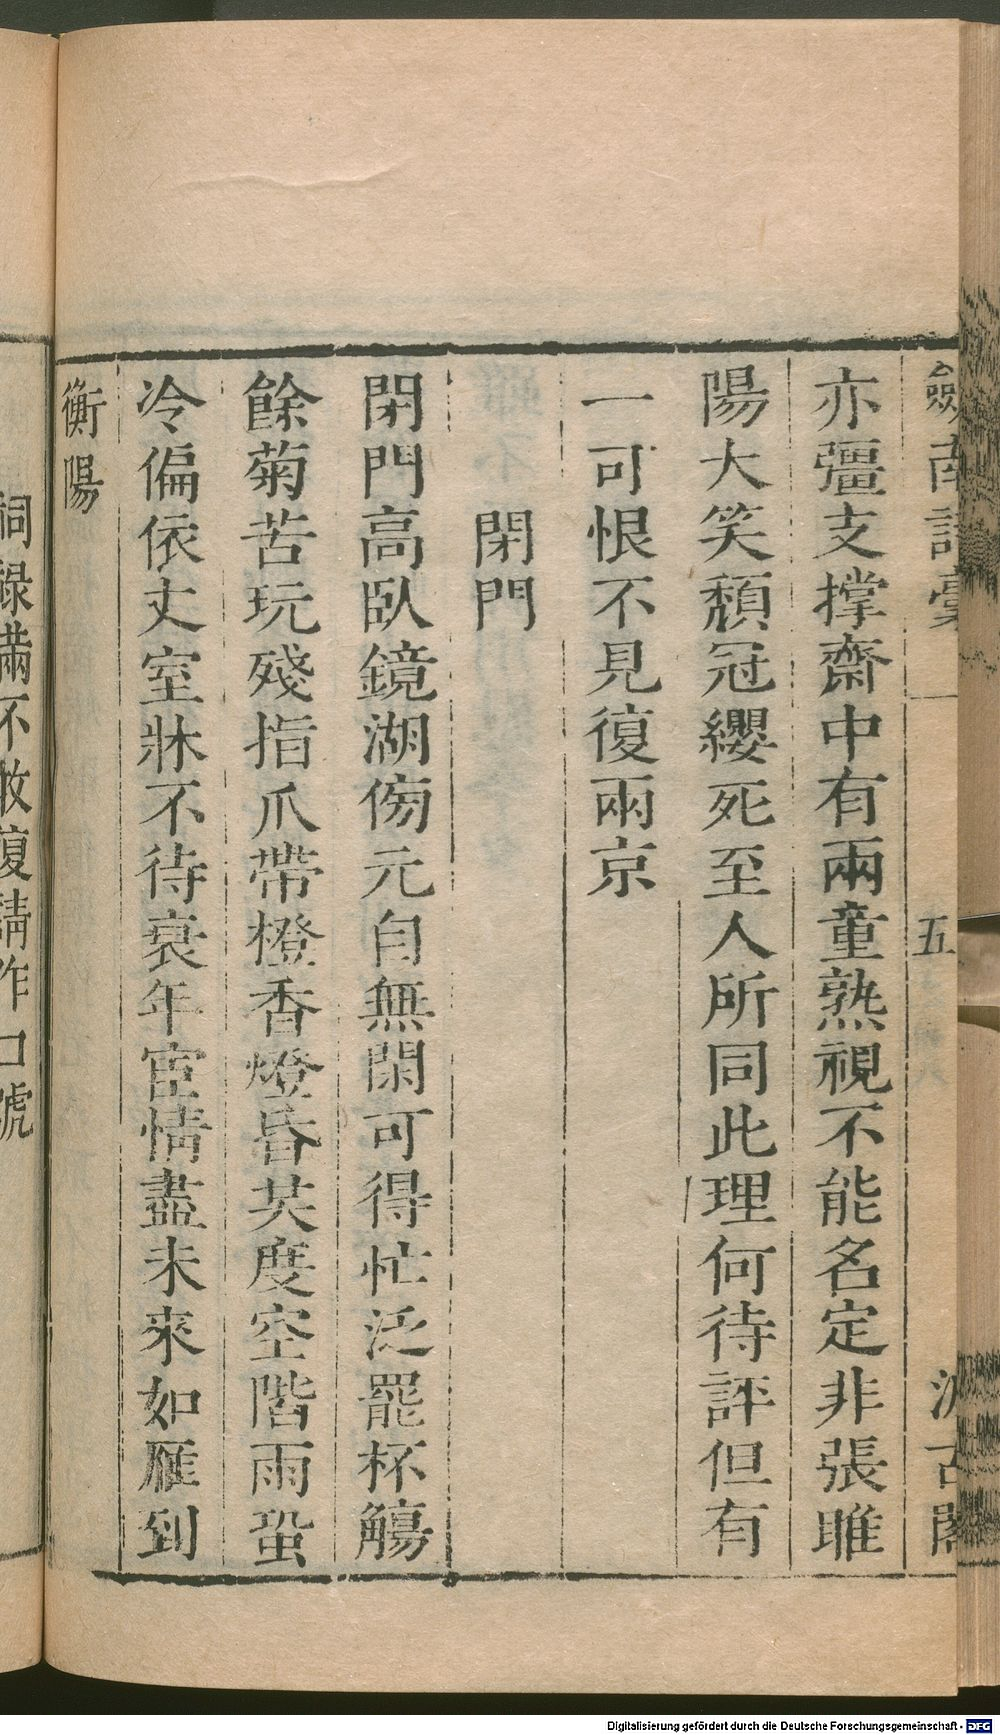 劒南詩稾 一 五 汲古閣
亦彊支撑齋中有兩童熟視不能名定非張睢
陽大笑頽冠纓死至人所同此理何待評但有
一可恨不見復兩京
閉門
閉門高臥鏡湖傍元自無閑可得忙泛罷杯觴
餘菊苦玩殘指爪帶橙香燈昏茣度空階雨蛩
冷偏依丈室牀不待衰年宦情盡未來如雁到
衡陽
祠祿滿不敢復請作口號
Digitalisierung gefördert durch die Deutsche Forschungsgemeinschaft - DFG